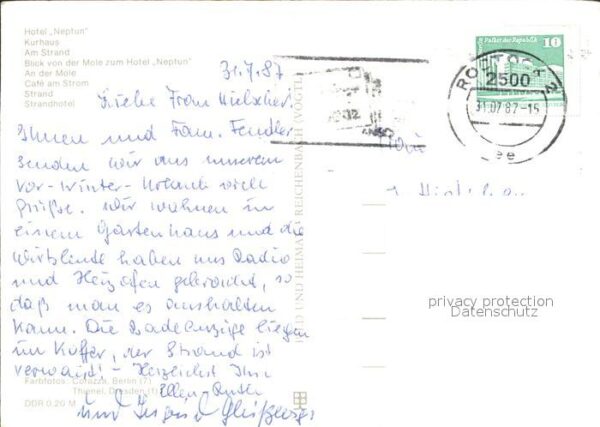 Hotel „Neptun“
Kurhaus
Am Strand
Blick von der Mole zum Hotel „Neptun“
An der Mole
Café am Strom
Strand
Strandhotel
31.7.87
Liebe Frau Hielscher!
Ihnen und Fam. Fendler
senden wir aus unserem
Vor-Winter-Urlaub viele
Grüße. Wir wohnen in
einem Gartenhaus und die
Wirtsleute haben uns Radio
und Heizofen geborgt, so
daß man es aushalten
kann. Die Badeanzüge liegen
im Koffer, der Strand ist
verwaist! – Herzlichst Ihre
Ellen
und
Farbfotos: Corazza, Berlin (7)
Thienel, Dresden (1)
DDR 0,20 M
BILD UND HEIMAT REICHENBACH (VOGTL)
Palast der Republik
10
ROSTOCK 2
2500
31.07.87-15
ee
Frau
privacy protection
Datenschutz